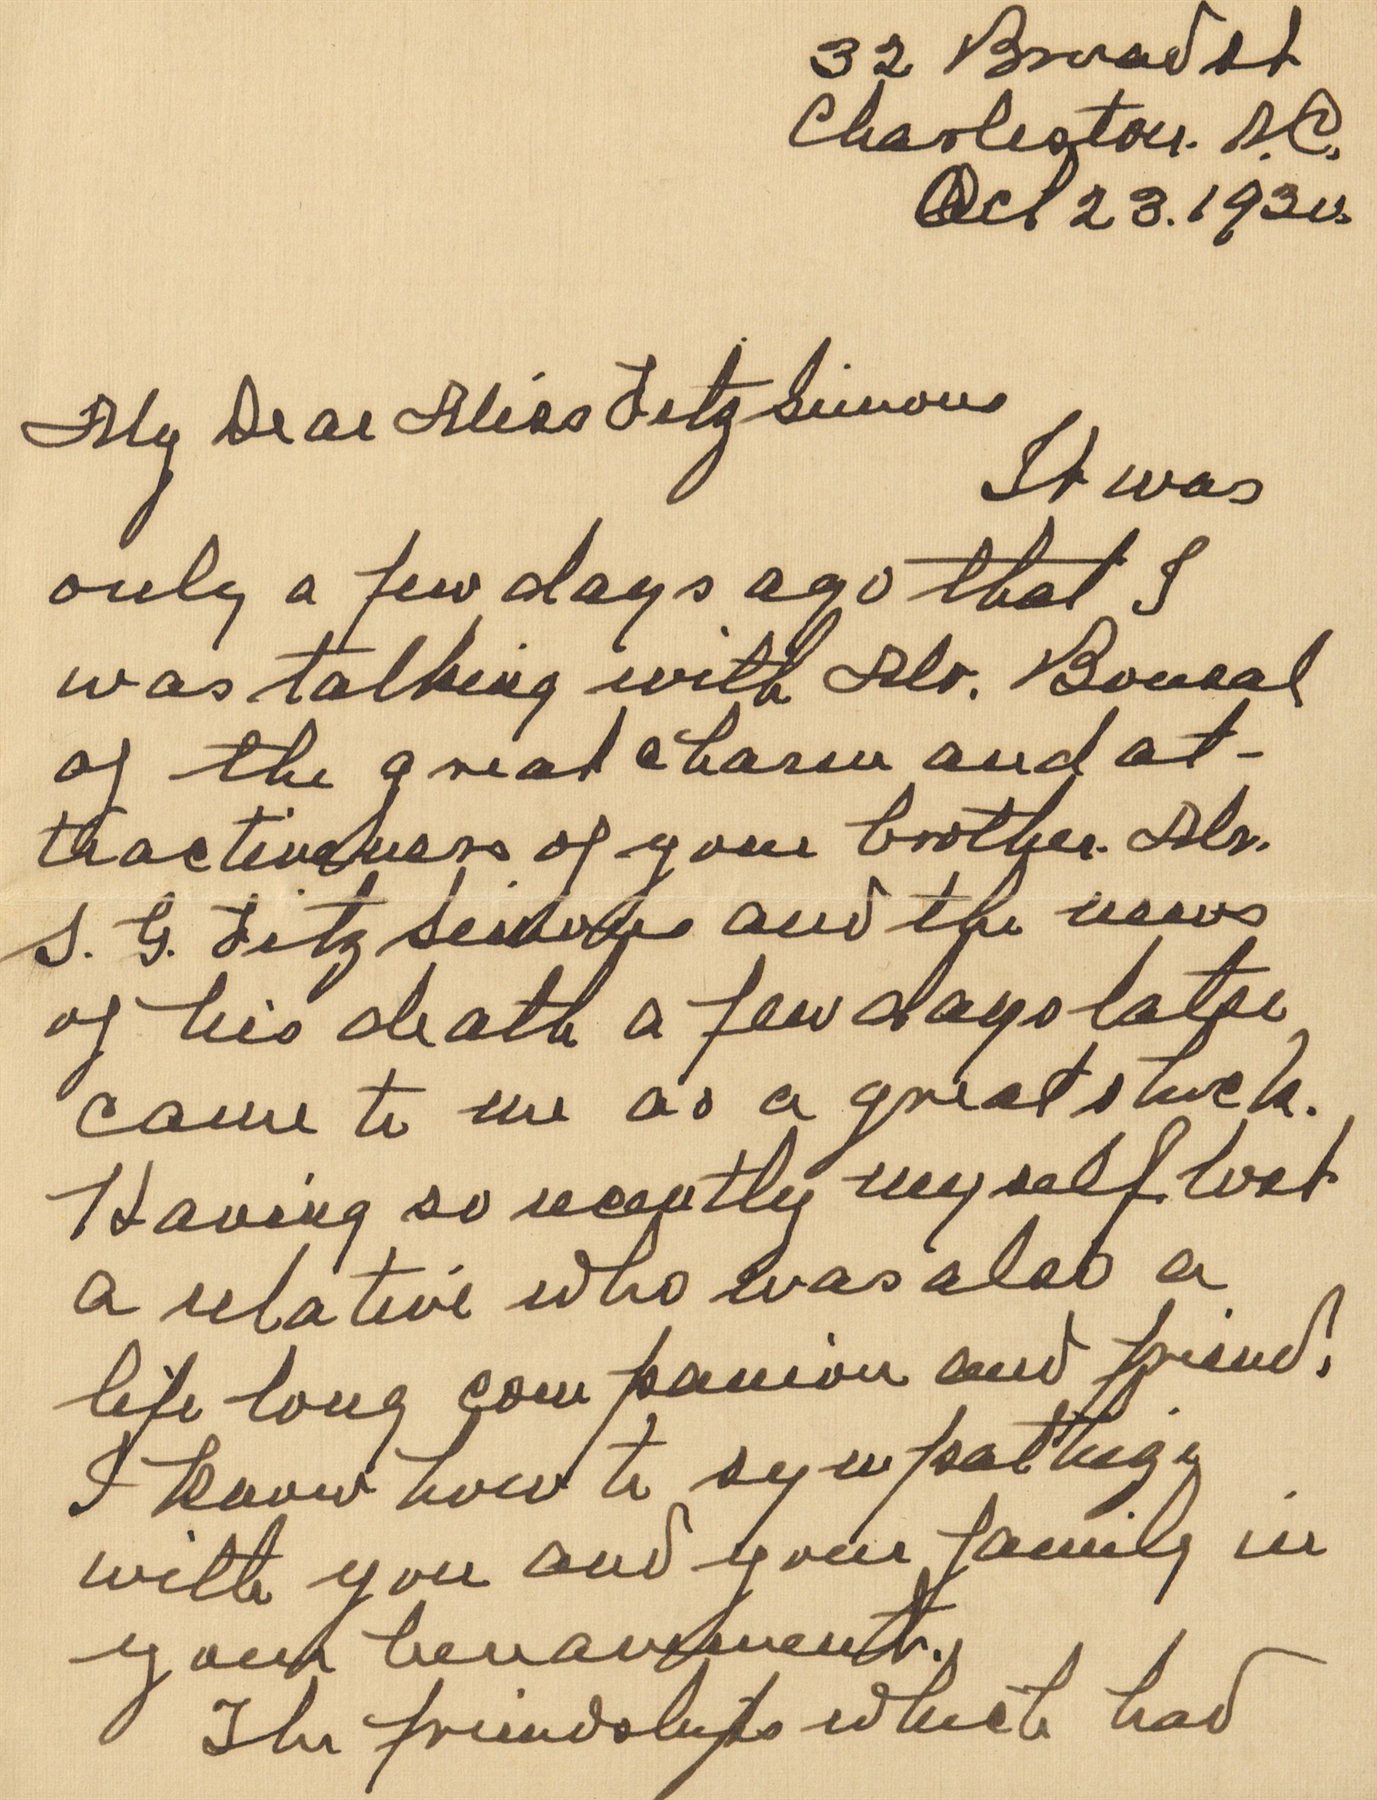 32 Broad St
Charleston. S.C.
Oct 23. 1930.
My Dear Miss FitzSimons
It was
only a few days ago that I
was talking with Mr. Bonsal
of the great charm and at-
tractiveness of your brother. Mr.
S. G. FitzSimons and the news
of his death a few days later
came to me as a great shock.
Having so recently myself lost
a relative who was also a
life long companion and friend,
I know how to sympathize
with you and your family in
your bereavement.
The friendships which had